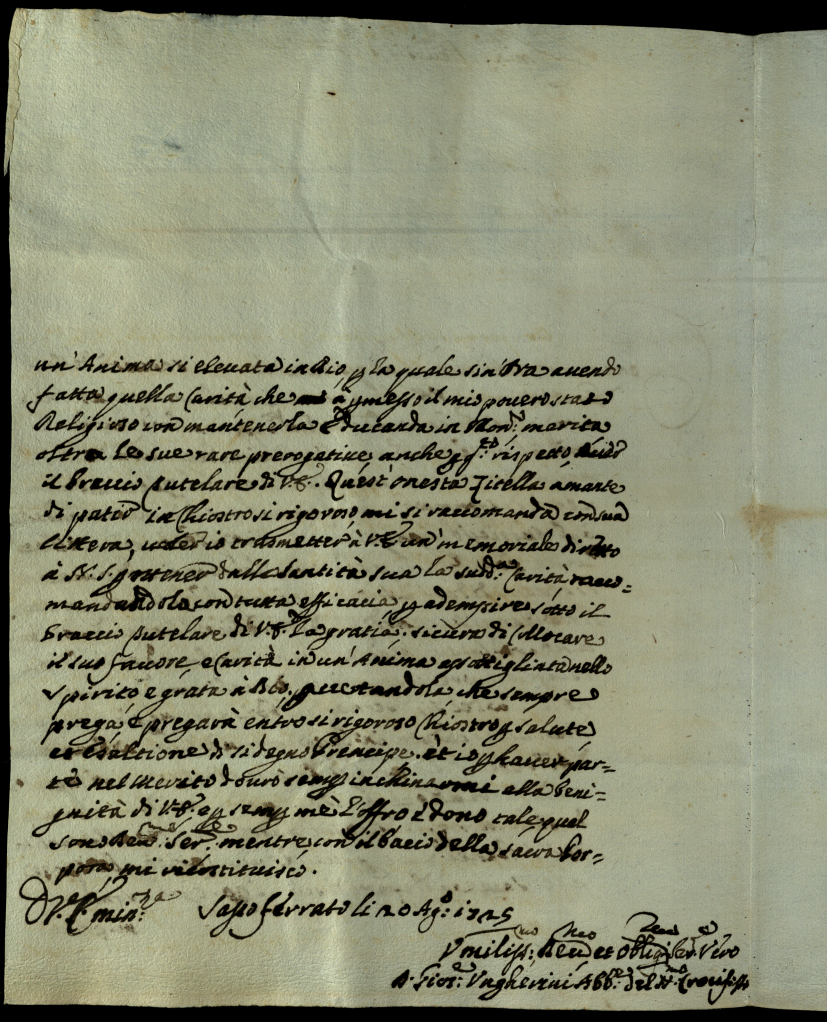 un' Anima si elevata in Dio, p la quale sin' Ora avendo
fatta quella Carità che à pmesso il mio povero stato
Religioso con mantenerla Educanda in Mon:ro merita
oltre le sue rare prerogative anche p rispetto
il braccio tutelare di V:E:. Quest' onesta Zitella amante
di patir in Chiostro si rigoroso mi si raccomanda con sua
lettera, voler io trasmetter à V:E: un' memoriale diretto
à N:S: p ottener dalla Santità sua la sudd:a Carità racco=
mandandola con tutta efficacia p adempire sotto il
braccio tutelare di V:E: la gratia, sicura di Collocare
il suo favore, e Carità in un' Anima nello
spirito e grata à Dio, che sempre
prega, e pregarà entro si rigoroso Chiostro p salute
et Esaltione di si degno Prencipe. et io p haver par=
te nel merito dovrò semp inchinarmi alla beni=
gnità di V:E: e p semp mè l'offro è dono tale qual
sono Ser:re mentre con il bacio della sacra Por=
pora mi
D V:a Emin:za Sasso ferrato li 20 Ag:o 1725
Umiliss:mo et Oblig:mo Ser:e Vero
D. Gio: Ungherini Abb:e del SS:mo Crocifisso